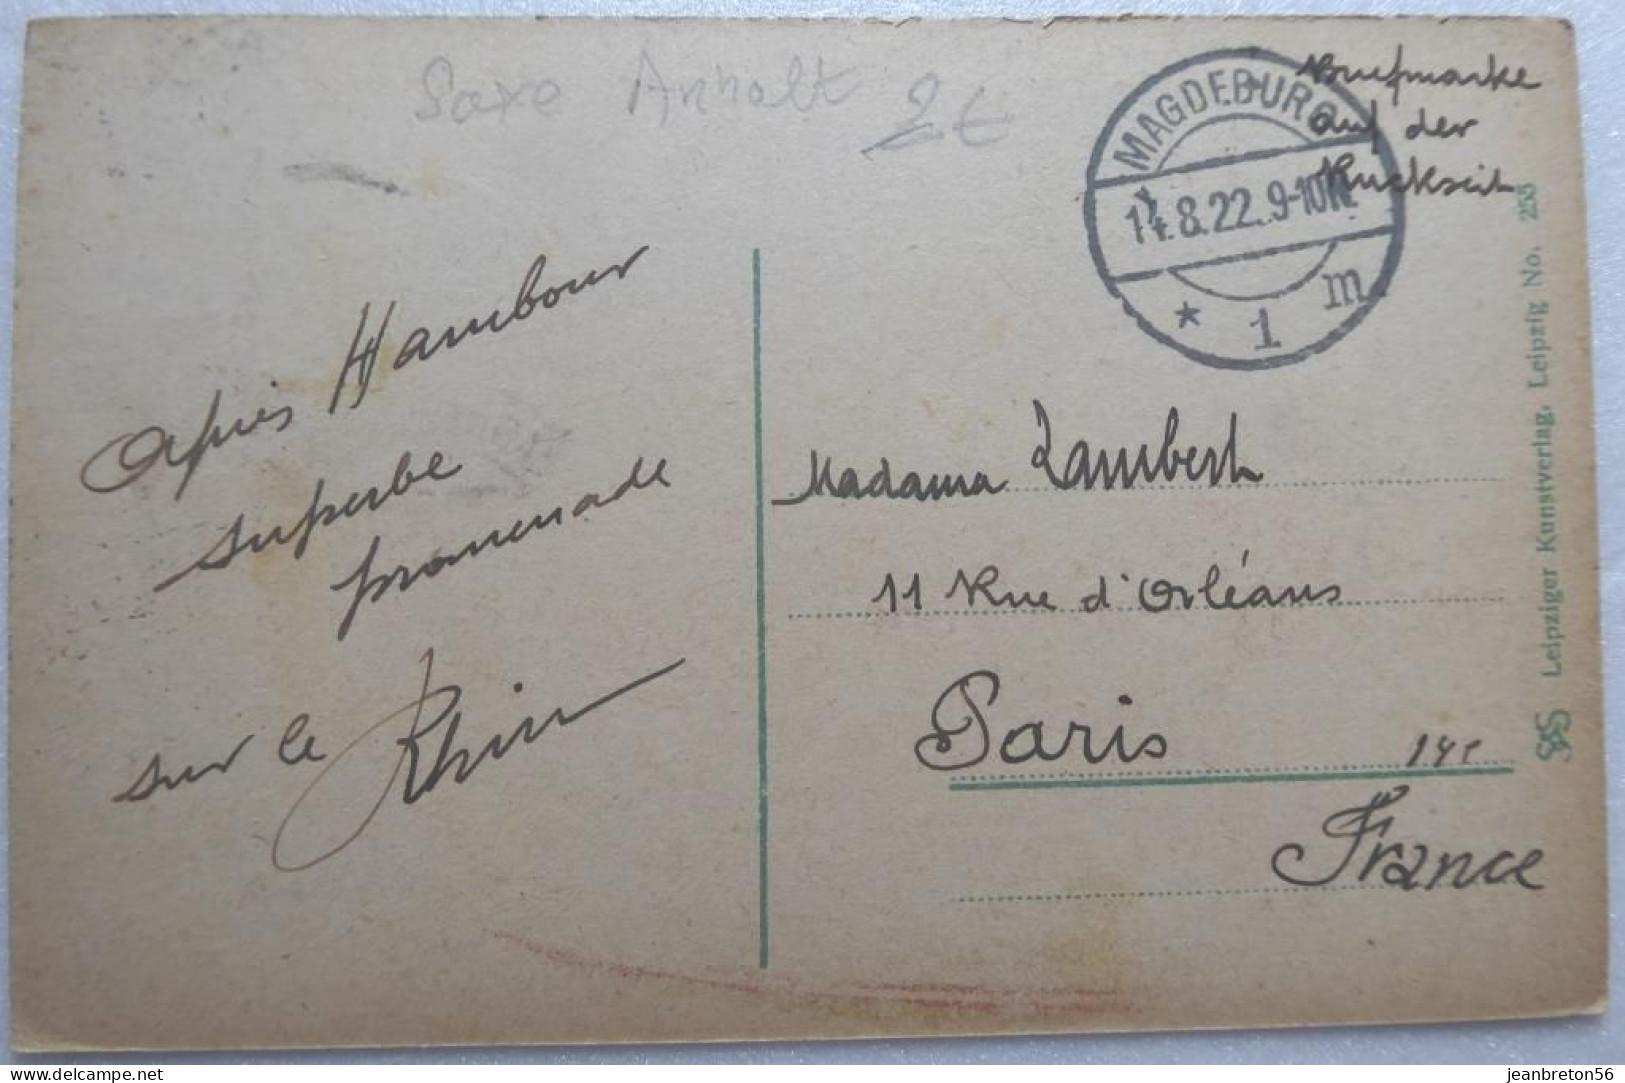 Saxe Anhalt 2€
MAGDEBURG
14.8.22.9-10N.
* 1 m
Briefmarke
auf der
Ruckseit
après Hambour
superbe
promenade
sur le Rhin
Madame Lambert
11 Rue d'Orléans
Paris 14e
France
Leipziger Kunstverlag, Leipzig No. 255
jeanbreton56
delcampe.net